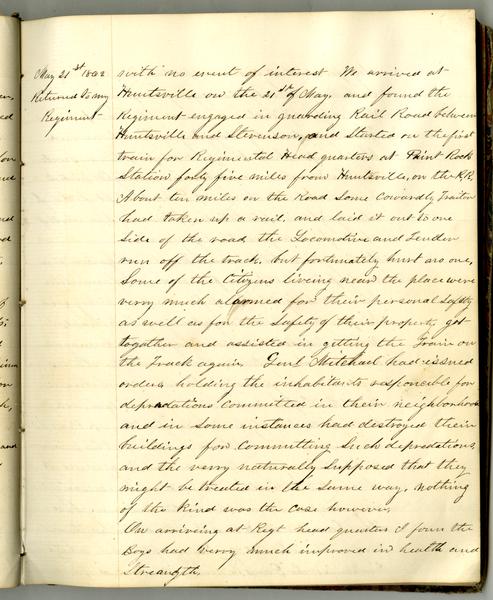 May 21st 1862
Returned to my
Regiment
with no event of interest We arrived at
Huntsville on the 21st of May, and found the
Regiment engaged in guarding Rail Road between
Huntsville and Stevenson, and Started on the first
train for Regimental Head quarters at Paint Rock
Station forty five miles from Huntsville, on the R.R.
About ten miles on the Road Some Cowardly Traitor
had taken up a rail, and laid it out to one
Side of the road, the Locomotive and Tender
run off the track, but fortunately hurt no one,
Some of the Citizens liveing near the place were
verry much alarmed for their personal Safty
as well as for the Safety of their property, got
together and assisted in gitting the Train on
the Track again, Genl Mitchael had issued
orders holding the inhabitants responsible for
depradations committed in their neighborhood
and in Some instances had destroyed their
buildings for Committing Such depradations,
and the verry naturally Supposed that they
might be treated in the Same way, nothing
of the kind was the case however,
On arriveing at Regt head quarters I foun the
Boys had verry much improved in health and
Streangth,